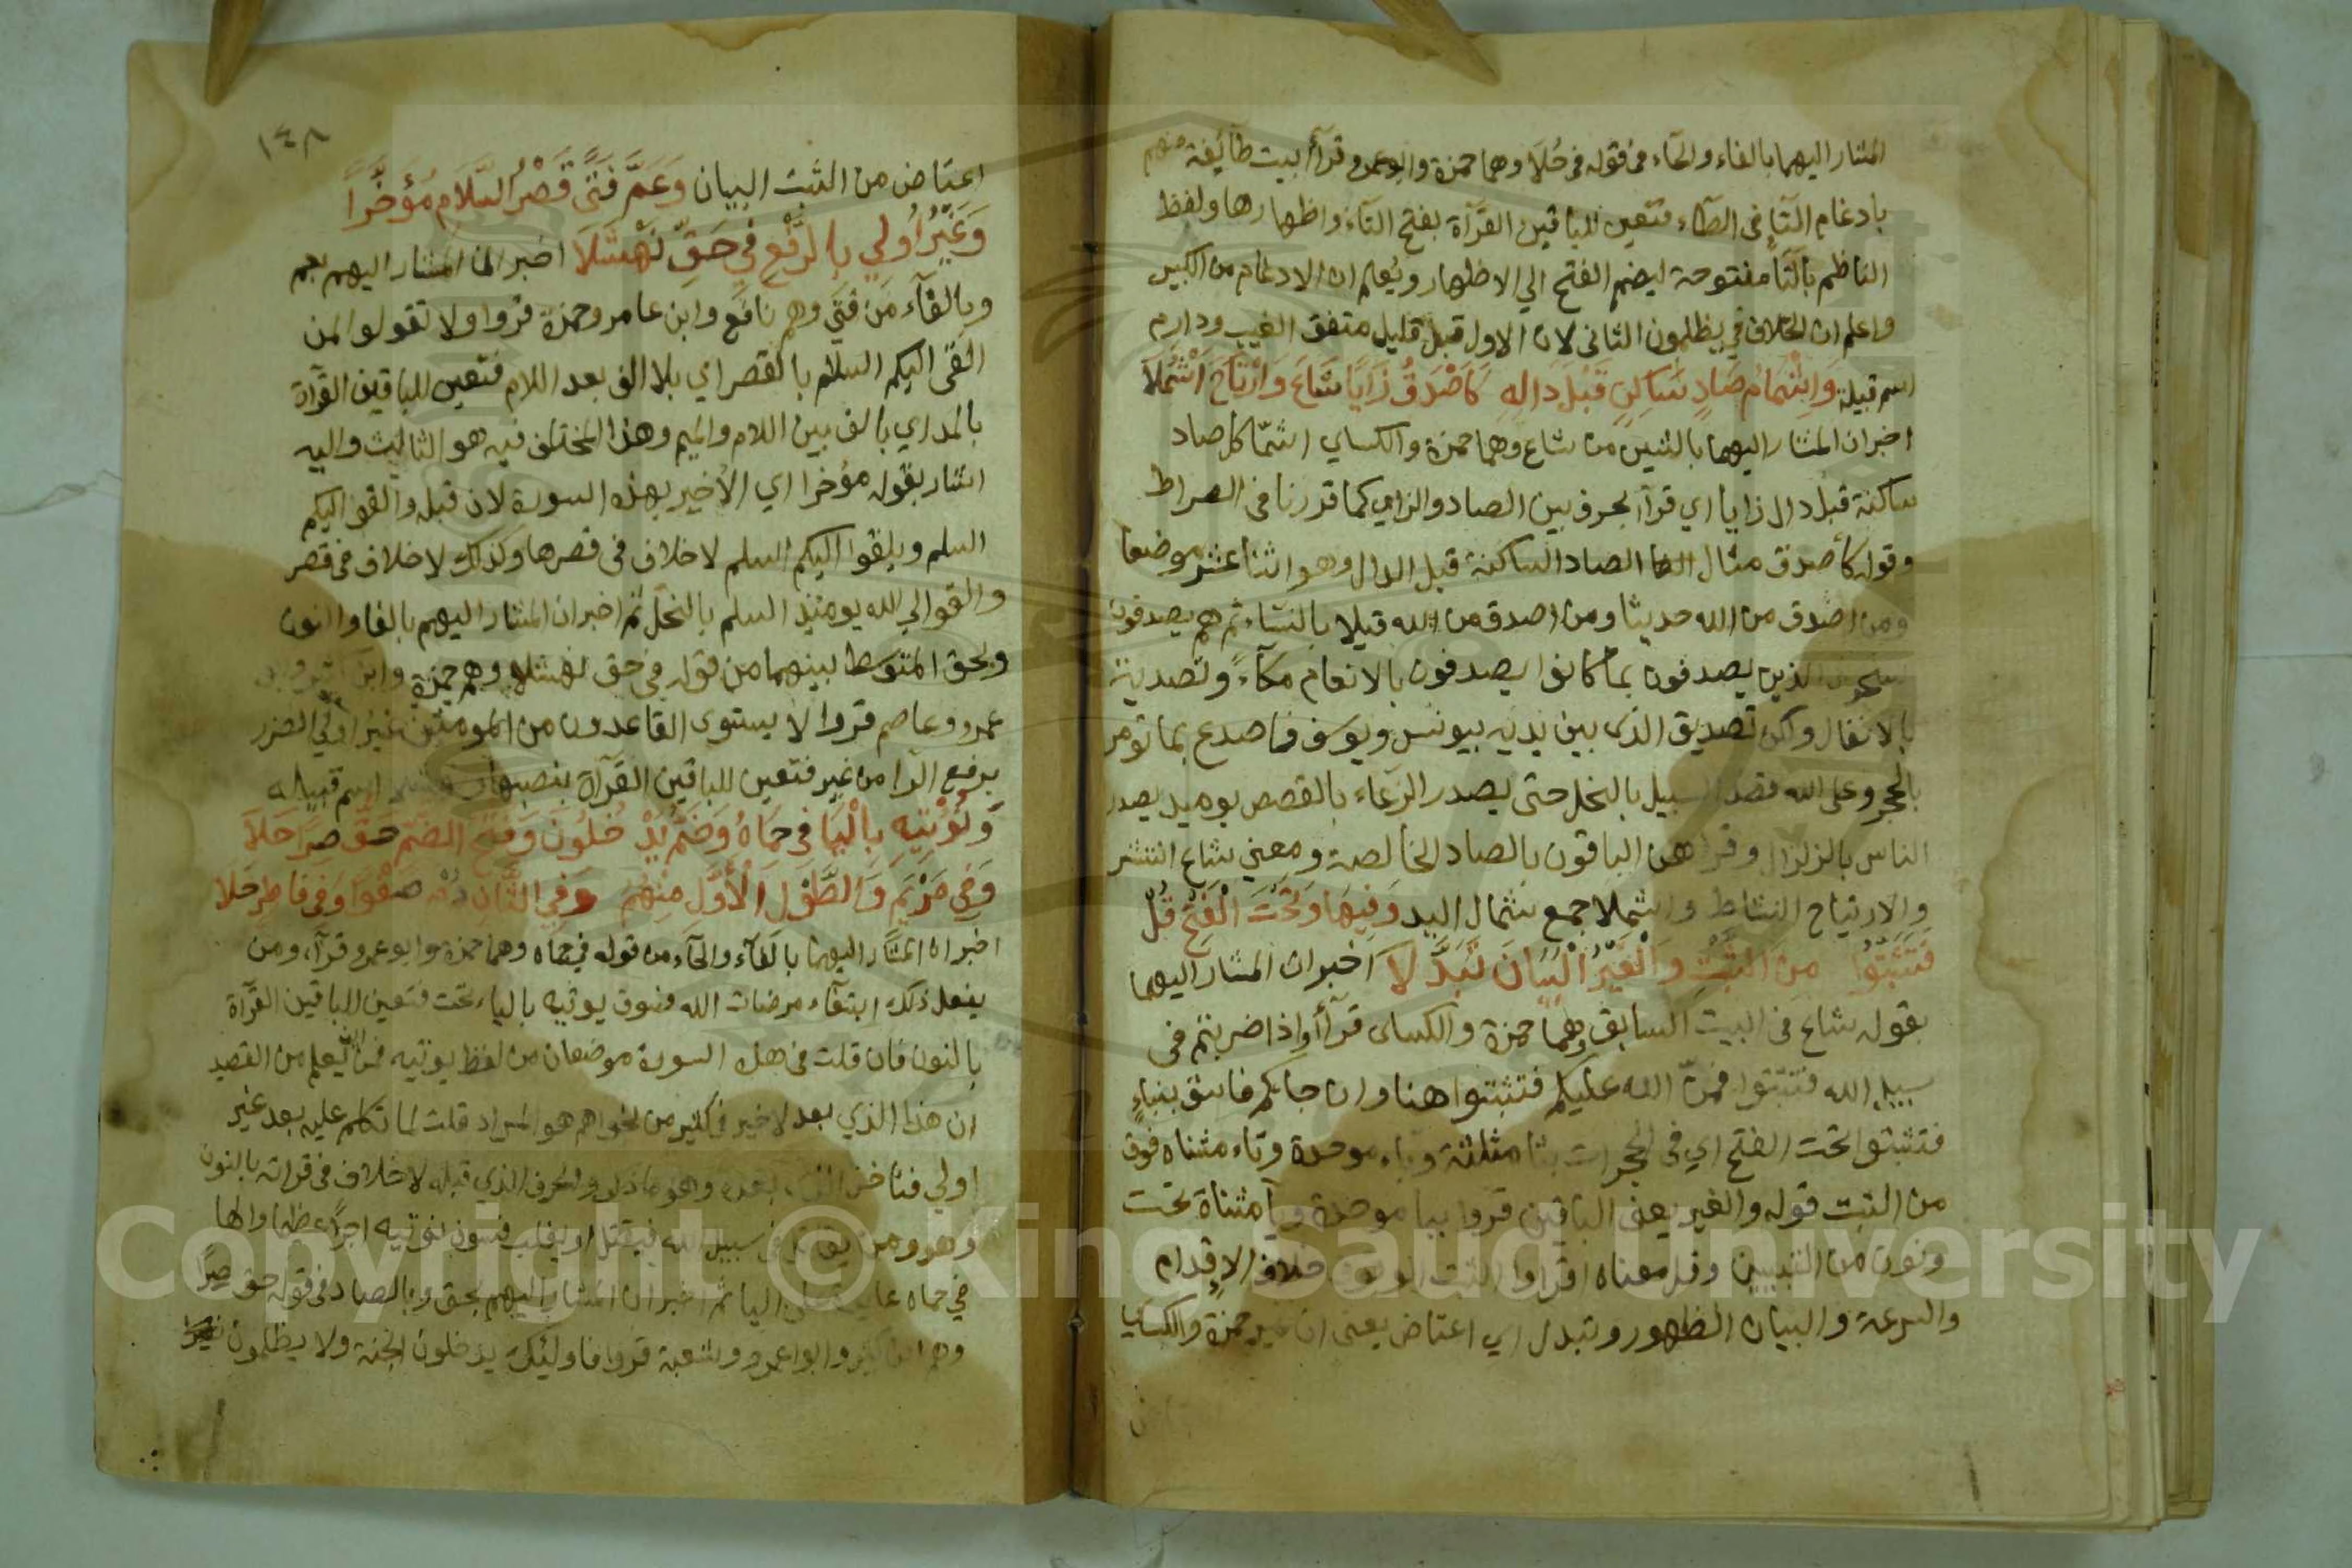 المشار اليهما بالفاء والحاء من قوله في حُلا وهما حمزة وابو عمرو قرآ أبيت طآئفة منهم
بادغام التآ في الطآء فتعين للباقين القرآة بفتح التآء واظهارها ولفظ
الناظم بالتآ مفتوحة ليضم الفتح الي الاظهار ويُعلم ان الادغام من الكبير
واعلم ان الخلاف في يظلمون الثاني لان الاول قبل قليل متفق الغيب ودارم
اسم قبيلة وَاِشْمَامُ صَادٍ سَاكِنٍ قَبْلَ دَالِهِ كَأَصْدَقُ زَايًا شَاعَ وَارْتَاحَ اَشْمُلَا
اخبر ان المشار اليهما بالشين من شاع وهما حمزة والكساي اشمّا كل صاد
ساكنة قبل دال زايا اي قرآ بحرف بين الصاد والزاي كما قررنا في الصراط
وقوله كأصدق مثال الصاد الساكنة قبل الدال وهو اثنا عشر موضعا
ومن اصدق من الله حديثا ومن اصدق من الله قيلا بالنساء ثم هم يصدفون
الذين يصدفون بما كانوا يصدفون بالانعام مكآءً وتصدية
بالانفال ولكن تصديق الذى بين يديه بيونس ويوسف فاصدع بما تومر
بالحجر وعلى الله قصد السبيل بالنحل حتى يصدر الرعاء بالقصص يوميد يصدر
الناس بالزلزال وقراهن الباقون بالصاد الخالصة ومعني شاع انتشر
والارتياح النشاط واشملا جمع شمال اليد وَفِيهَا وَتَحْتَ الْفَتْحِ قُلْ
فَتَثَبَّتُوا مِنَ الثَّبْتِ وَالْغَيْرُ الْبَيَانَ تَبَدَّلَا اخبر ان المشار اليهما
بقوله شاع في البيت السابق وهما حمزة والكساى قرآ أواذا ضربتم في
سبيل الله فتثبتوا فمنّ الله عليكم فتثبتوا هنا وان جاكم فاسق بنباءٍ
فتثبتوا تحت الفتح اي في الحجرات بثا مثلثة وباء موحدة وتاء مثناه فوق
من الثبت قوله والغير يعني الباقين قروا بيا موحدة ويآ مثناة تحت
ونون من التبيين وقل معناه اقراوا الثبت خلاف الاقدام
والسرعة والبيان الظهور وتبدل اي اعتاض يعني ان غير حمزة والكساي
١٤٨
اعتاض من الثبت البيان وَعَمَّ فَتًى قَصْرُ السَّلَامِ مُؤَخَّرًا
وَغَيْرُ اُولِي بِالرَّفْعِ فِي حَقِّ نَهْشَلَا اخبر ان المشار اليهم بعم
وبالفآء من فتي وهم نافع وابن عامر وحمزة قروا ولا تقولوا لمن
القى اليكم السلم بالقصر اي بلا الف بعد اللام فتعين للباقين القرآة
بالمد اي بالف بين اللام والميم وهذا المختلف فيه هو الثالث واليه
اشار بقوله مؤخرا اي الأخير بهذه السورة لان قبله والقوا اليكم
السلم ويلقوا اليكم السلم لا خلاف في قصرها وكذلك لا خلاف في قصر
والقوا الي الله يومئيذ السلم بالنحل ثم اخبر ان المشار اليهم بالفا والنون
وبحق المتوسط بينهما من قوله في حق نهشلا وهم حمزة وابن
عمرو وعاصم قروا لا يستوى القاعدون من المومنين غيرُ اولي الضرر
برفع الرا من غير فتعين للباقين القرآة بنصبها اسم قبيله
وَنُؤْتِيهِ بِالْيَا فِي حِمَاهُ وَضَمُّ يَدْ خُلُونَ وَفَتْحُ الضَّمِّ حَقُّ صِرًا حَلَا
وَفِي مَرْيَمٍ وَالطَّوْلِ الْأَوَّلُ مِنْهُمُ وَفِي الثَّانِ دُمْ صَفْوًا وَفِي فَاطِرٍ حَلَا
اخبر ان المشار اليهما بالفآء والحآء من قوله في حماه وهما حمزة وابو عمرو قرآ، ومن
يفعل ذلك ابتغآء مرضات الله فسوف يوتيه بالياء تحت فتعين للباقين القرآة
بالنون فان قلت في هذه السورة موضعان من لفظ يوتيه فمن اين يعلم من القصيد
ان هذا الذي بعد لا خير في كثير من نجواهم هو المراد قلت لما تكلم عليه بعد غير
اولي بعده والحرف الذي قبله لا خلاف في قراته بالنون
وهو ومن يقاتل في سبيل الله فيقتل او يغلب فسوف نوتيه اجرا عظيما والها
في حماه اليا ثم اخبر ان المشار اليهم بحق وبالصاد في قوله حق صرًا
وهم ابن كثير وابو عمرو وشعبة قروا فاوليك يدخلون الجنة ولا يظلمون نقيرا